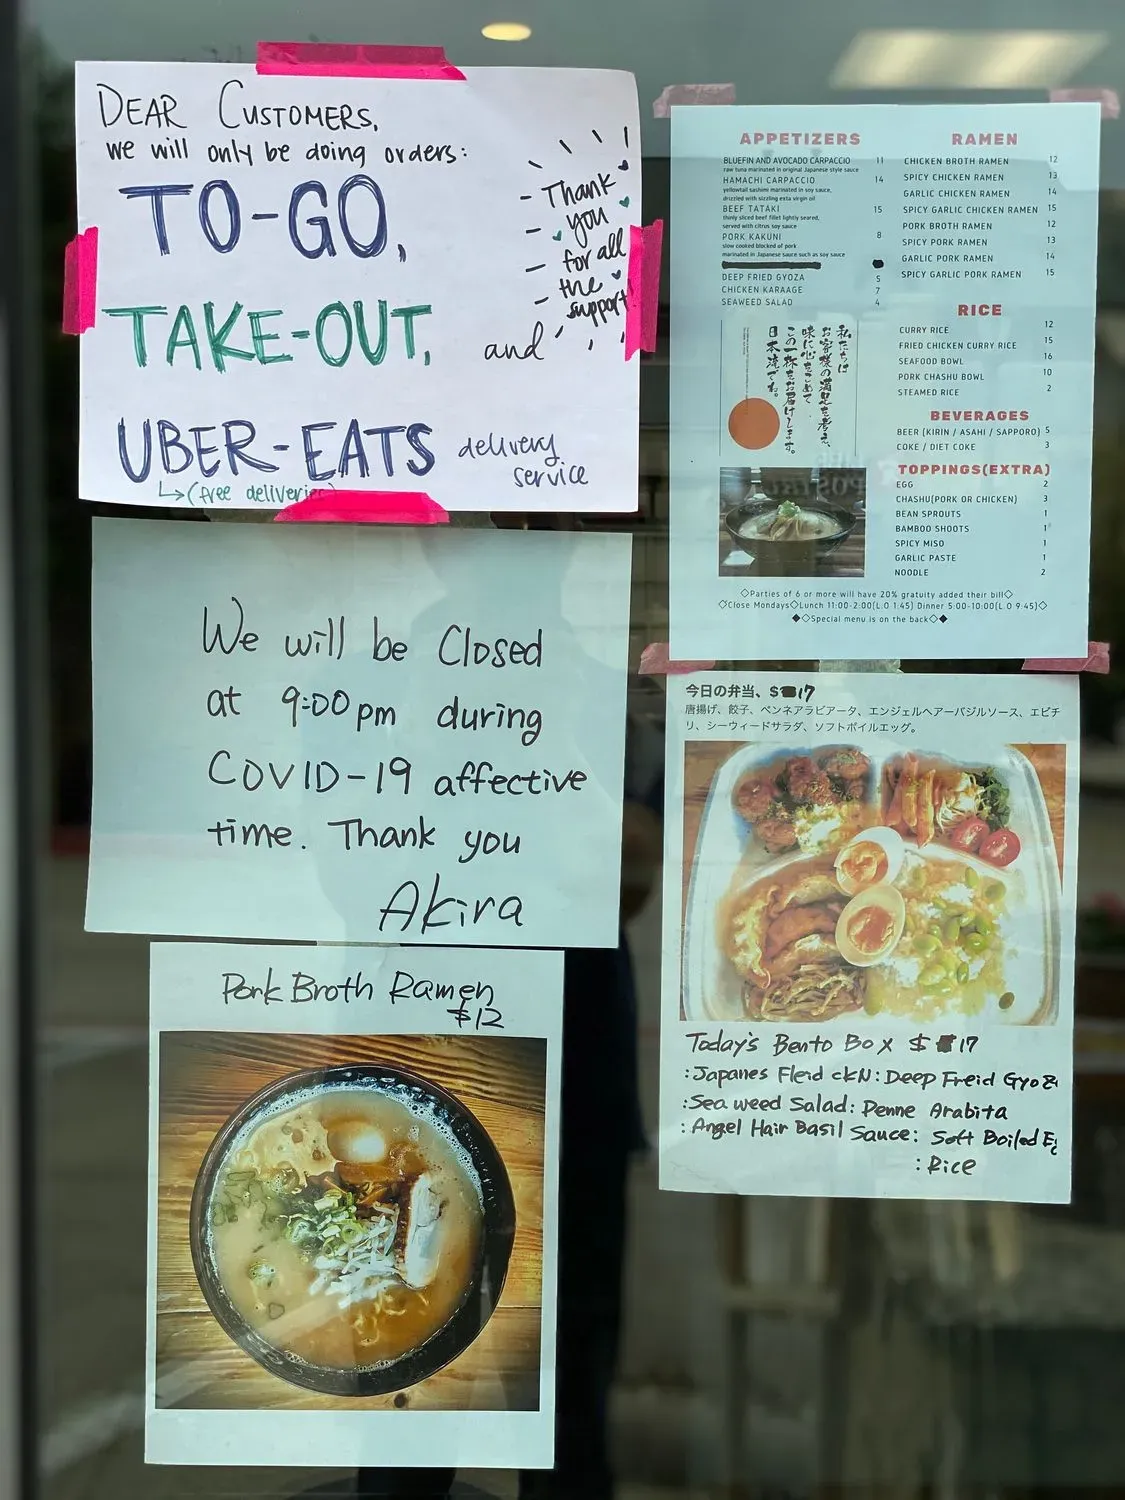 DEAR CUSTOMERS,
we will only be doing orders:
TO-GO,
TAKE-OUT,
and
UBER-EATS delivery
service
(free deliveries)
Thank
you
for all
the
support
We will be Closed
at 9:00pm during
COVID-19 affective
time. Thank you
Akira
Pork Broth Ramen
$12
APPETIZERS
BLUEFIN AND AVOCADO CARPACCIO 11
raw tuna marinated in original Japanese style sauce
HAMACHI CARPACCIO 14
yellowtail sashimi marinated in soy sauce,
drizzled with sizzling exta virgin oil
BEEF TATAKI 15
thinly sliced beef fillet lightly seared,
served with citrus soy sauce
PORK KAKUNI 8
slow cooked blocked of pork
marinated in Japanese sauce such as soy sauce
DEEP FRIED GYOZA 5
CHICKEN KARAAGE 7
SEAWEED SALAD 4
私たちは
お客様の満足を考え、
味に心をこめて
この一杯をお届けします。
日本流でね。
RAMEN
CHICKEN BROTH RAMEN 12
SPICY CHICKEN RAMEN 13
GARLIC CHICKEN RAMEN 14
SPICY GARLIC CHICKEN RAMEN 15
PORK BROTH RAMEN 12
SPICY PORK RAMEN 13
GARLIC PORK RAMEN 14
SPICY GARLIC PORK RAMEN 15
RICE
CURRY RICE 12
FRIED CHICKEN CURRY RICE 15
SEAFOOD BOWL 16
PORK CHASHU BOWL 10
STEAMED RICE 2
BEVERAGES
BEER (KIRIN / ASAHI / SAPPORO) 5
COKE / DIET COKE 3
TOPPINGS(EXTRA)
EGG 2
CHASHU(PORK OR CHICKEN) 3
BEAN SPROUTS 1
BAMBOO SHOOTS 1
SPICY MISO 1
GARLIC PASTE 1
NOODLE 2
◇Parties of 6 or more will have 20% gratuity added their bill◇
◇Close Mondays◇Lunch 11:00-2:00(L.O 1:45) Dinner 5:00-10:00(L.O 9:45)◇
◆◇Special menu is on the back◇◆
今日の弁当、$17
唐揚げ、餃子、ペンネアラビアータ、エンジェルヘアーバジルソース、エビチ
リ、シーウィードサラダ、ソフトボイルエッグ。
Today's Bento Box $17
:Japanes Fleid ckN:Deep Freid Gyoz
:Sea weed Salad: Penne Arabita
:Angel Hair Basil Sauce: Soft Boiled Eg
:Rice